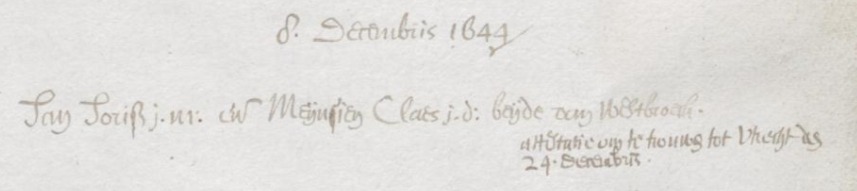 8. Decembris 1644
Jan Joriß j.m. en Meynsien Claes j.d: beijde van Westbroek.
attestatie om te trouwen tot Utrecht den
24. Decembris.